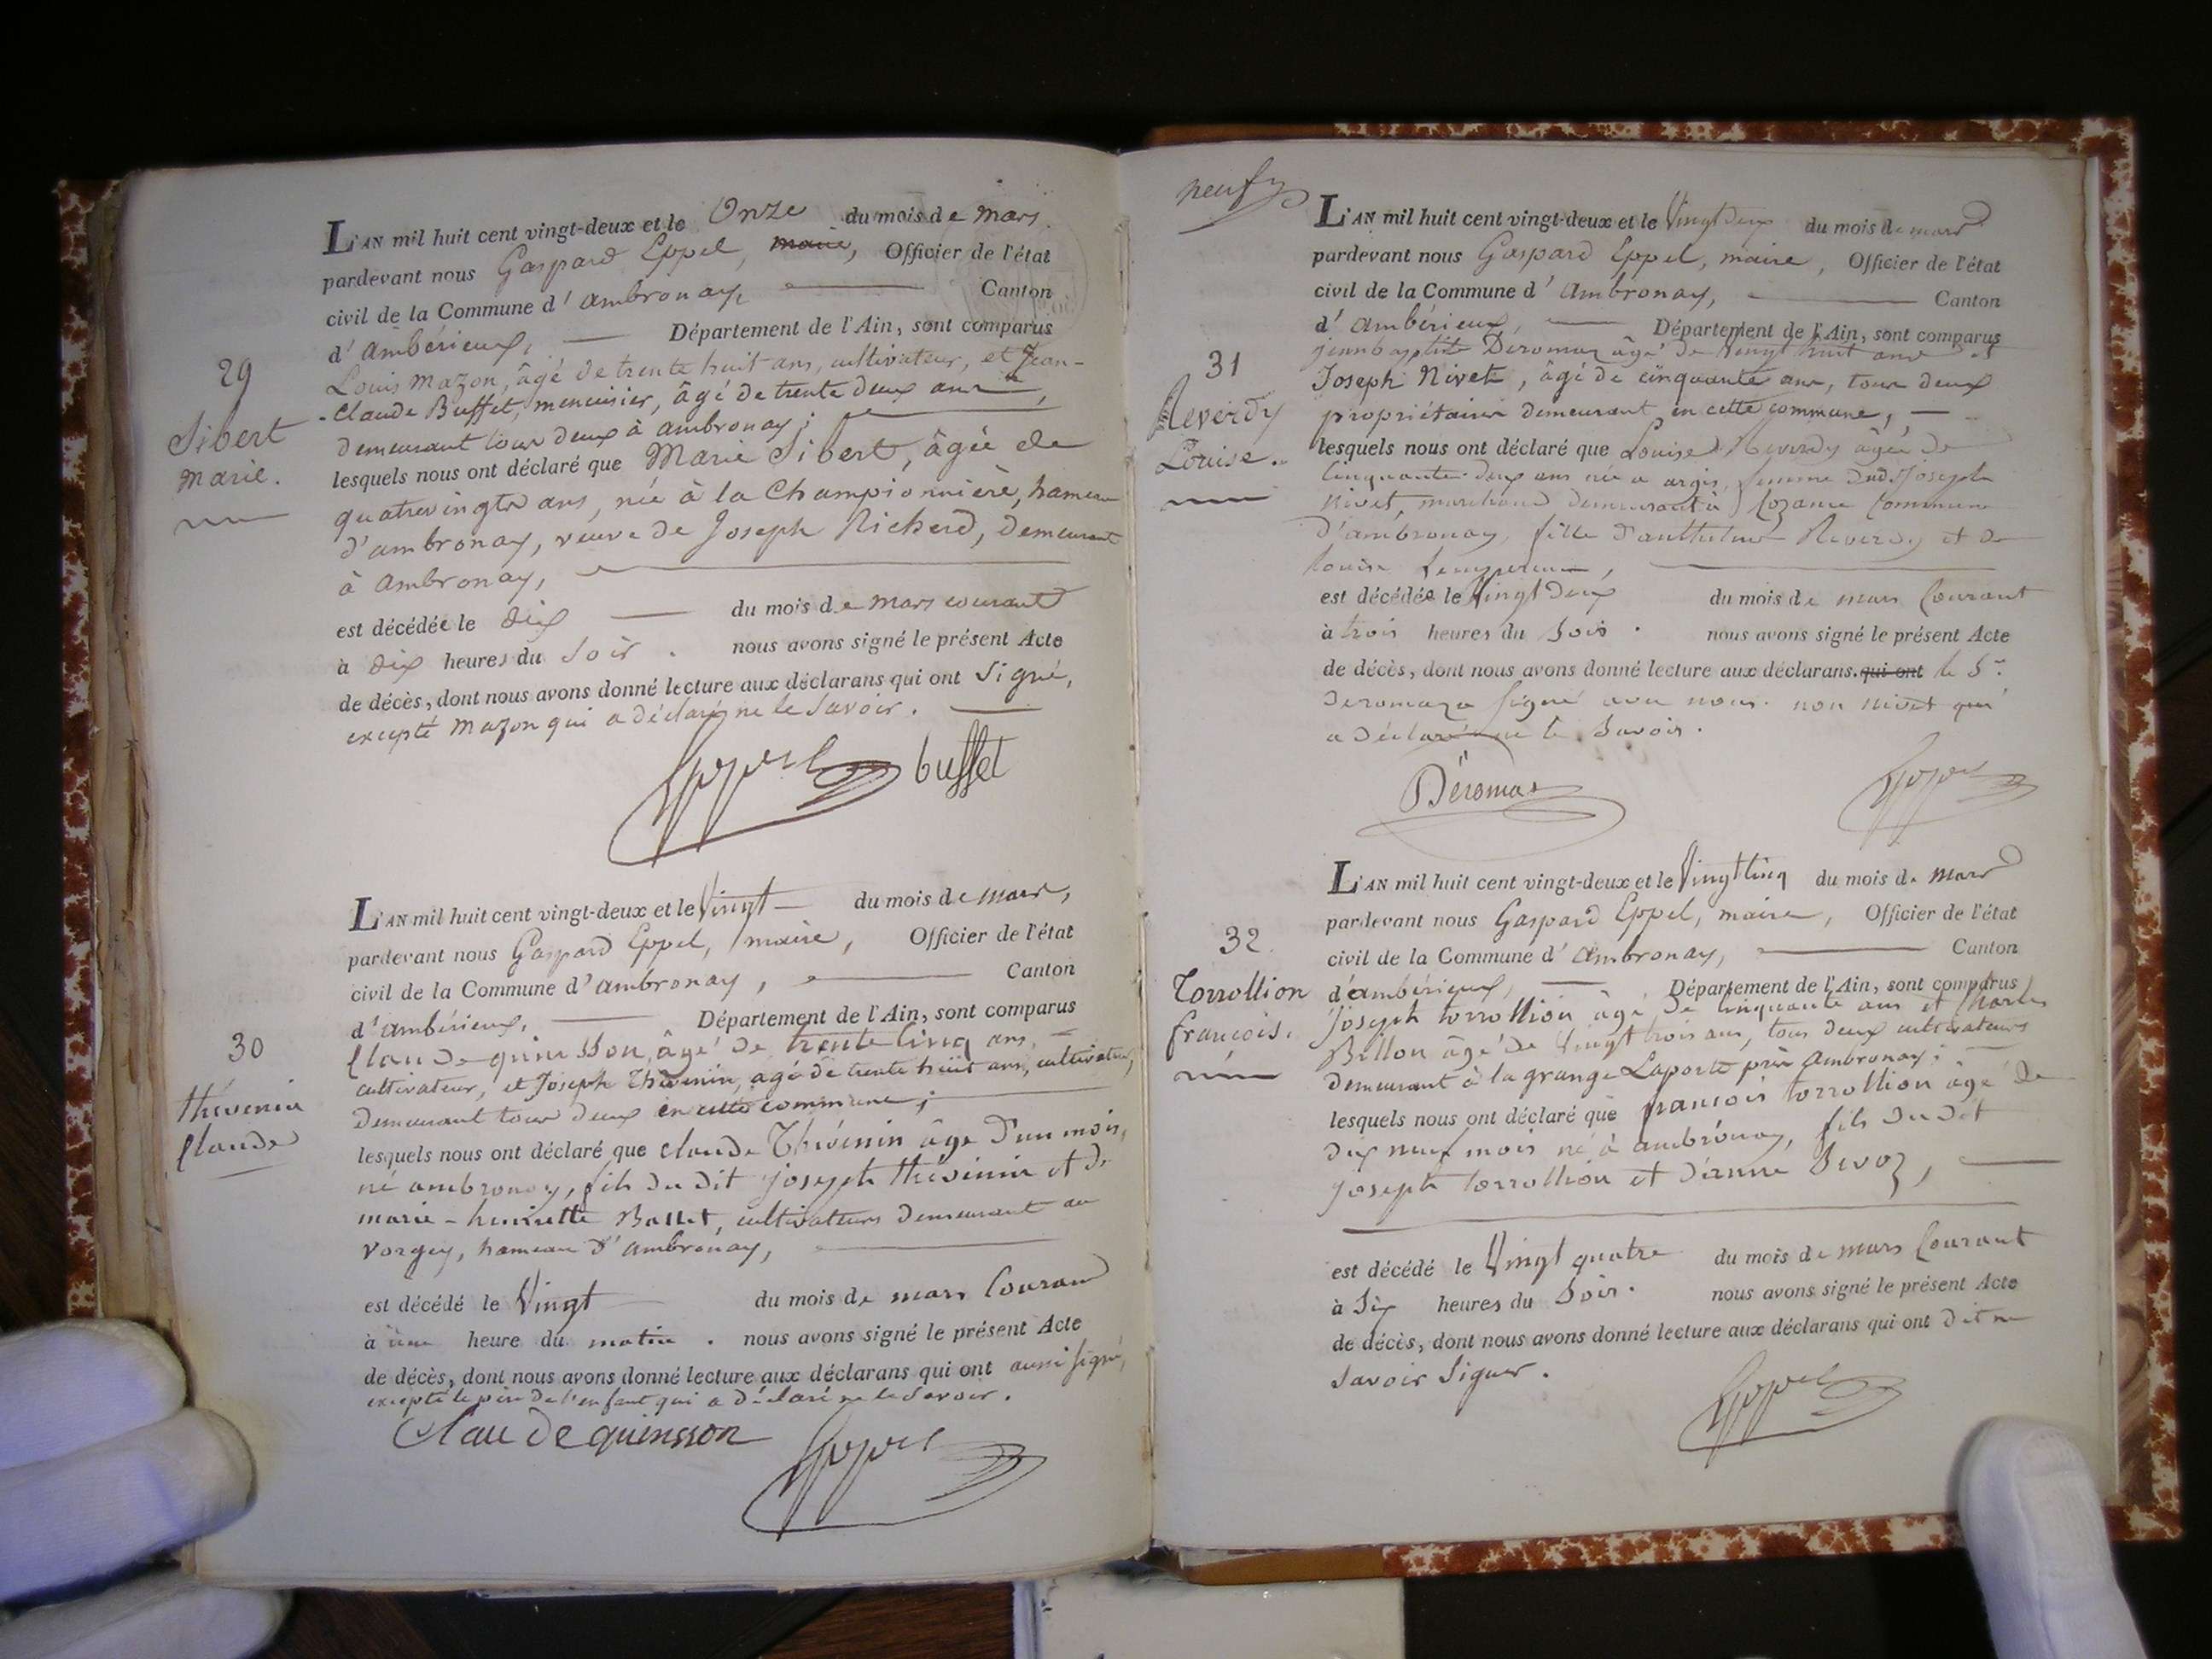 29
Sibert
Marie.
L'AN mil huit cent vingt-deux et le Onze du mois de Mars
pardevant nous Gaspard Eppel, maire, Officier de l'état
civil de la Commune d'ambronay, Canton
d'ambérieux, Département de l'Ain, sont comparus
Louis Mazon, âgé de trente huit ans, cultivateur, et Jean-
-Claude Buffet, menuisier, âgé de trente deux ans,
demeurant tous deux à ambronay;
lesquels nous ont déclaré que Marie Sibert, âgée de
quatrevingts ans, née à la Championnière, hameau
d'ambronay, veuve de Joseph Richerd, demeurant
à ambronay,
est décédée le dix du mois de mars courant
à dix heures du soir. nous avons signé le présent Acte
de décès, dont nous avons donné lecture aux déclarans qui ont signé,
excepté Mazon qui a déclaré ne le savoir.
Eppel buffet
30
thévenin
Claude
L'AN mil huit cent vingt-deux et le Vingt du mois de mars,
pardevant nous Gaspard Eppel, maire, Officier de l'état
civil de la Commune d'ambronay, Canton
d'ambérieux, Département de l'Ain, sont comparus
Claude quinsson, âgé de trente cinq ans,
cultivateur, et Joseph Thévenin, agé de trente huit ans, cultivateur,
demeurant tous deux en cette commune;
lesquels nous ont déclaré que claude Thévenin âge d'un mois,
né ambronay, fils du dit joseph thévenin et de
marie-henriette Ballet, cultivateurs demeurant au
Vorgey, hameau d'ambronay,
est décédé le Vingt du mois de mars Courant
à une heure du matin. nous avons signé le présent Acte
de décès, dont nous avons donné lecture aux déclarans qui ont aussi signé,
excepté le père de l'enfant qui a déclaré ne le savoir.
Claude quinsson Eppel
neuf
31
Reverdy
Louise.
L'AN mil huit cent vingt-deux et le Vingt deux du mois de mars
pardevant nous Gaspard Eppel, maire, Officier de l'état
civil de la Commune d'ambronay, Canton
d'ambérieux, Département de l'Ain, sont comparus
jeanbaptiste Deromaz âgé de vingt huit ans et
Joseph Nivet, âgé de cinquante ans, tous deux
propriétaires demeurant en cette commune,
lesquels nous ont déclaré que Louise Reverdy âgée de
Cinquante deux ans née a argis, femme dud. Joseph
Nivet, marchand demeurant à Cozance Commune
d'ambronay, fille d'anthelme Reverdy et de
louise
est décédée le Vingt deux du mois de mars Courant
à trois heures du soir. nous avons signé le présent Acte
de décès, dont nous avons donné lecture aux déclarans. qui ont le Sr.
deromaz a signé avec nous. non nivet qui
a déclaré ne le savoir.
Déromas Eppel
32
Torrollion
françois.
L'AN mil huit cent vingt-deux et le Vingt Cinq du mois de Mars
pardevant nous Gaspard Eppel, maire, Officier de l'état
civil de la Commune d'ambronay, Canton
d'ambérieux, Département de l'Ain, sont comparus
Joseph torrollion âgé de Cinquante ans et Charles
Billon âgé de Vingt trois ans, tous deux cultivateurs
demeurant à la grange Laporte près ambronay;
lesquels nous ont déclaré que françois torrollion âgé de
dix neuf mois né à ambrónay, fils du dit
joseph torrollion et d'anne
est décédé le Vingt quatre du mois de mars Courant
à Six heures du Soir. nous avons signé le présent Acte
de décès, dont nous avons donné lecture aux déclarans qui ont dit ne
savoir signer.
Eppel